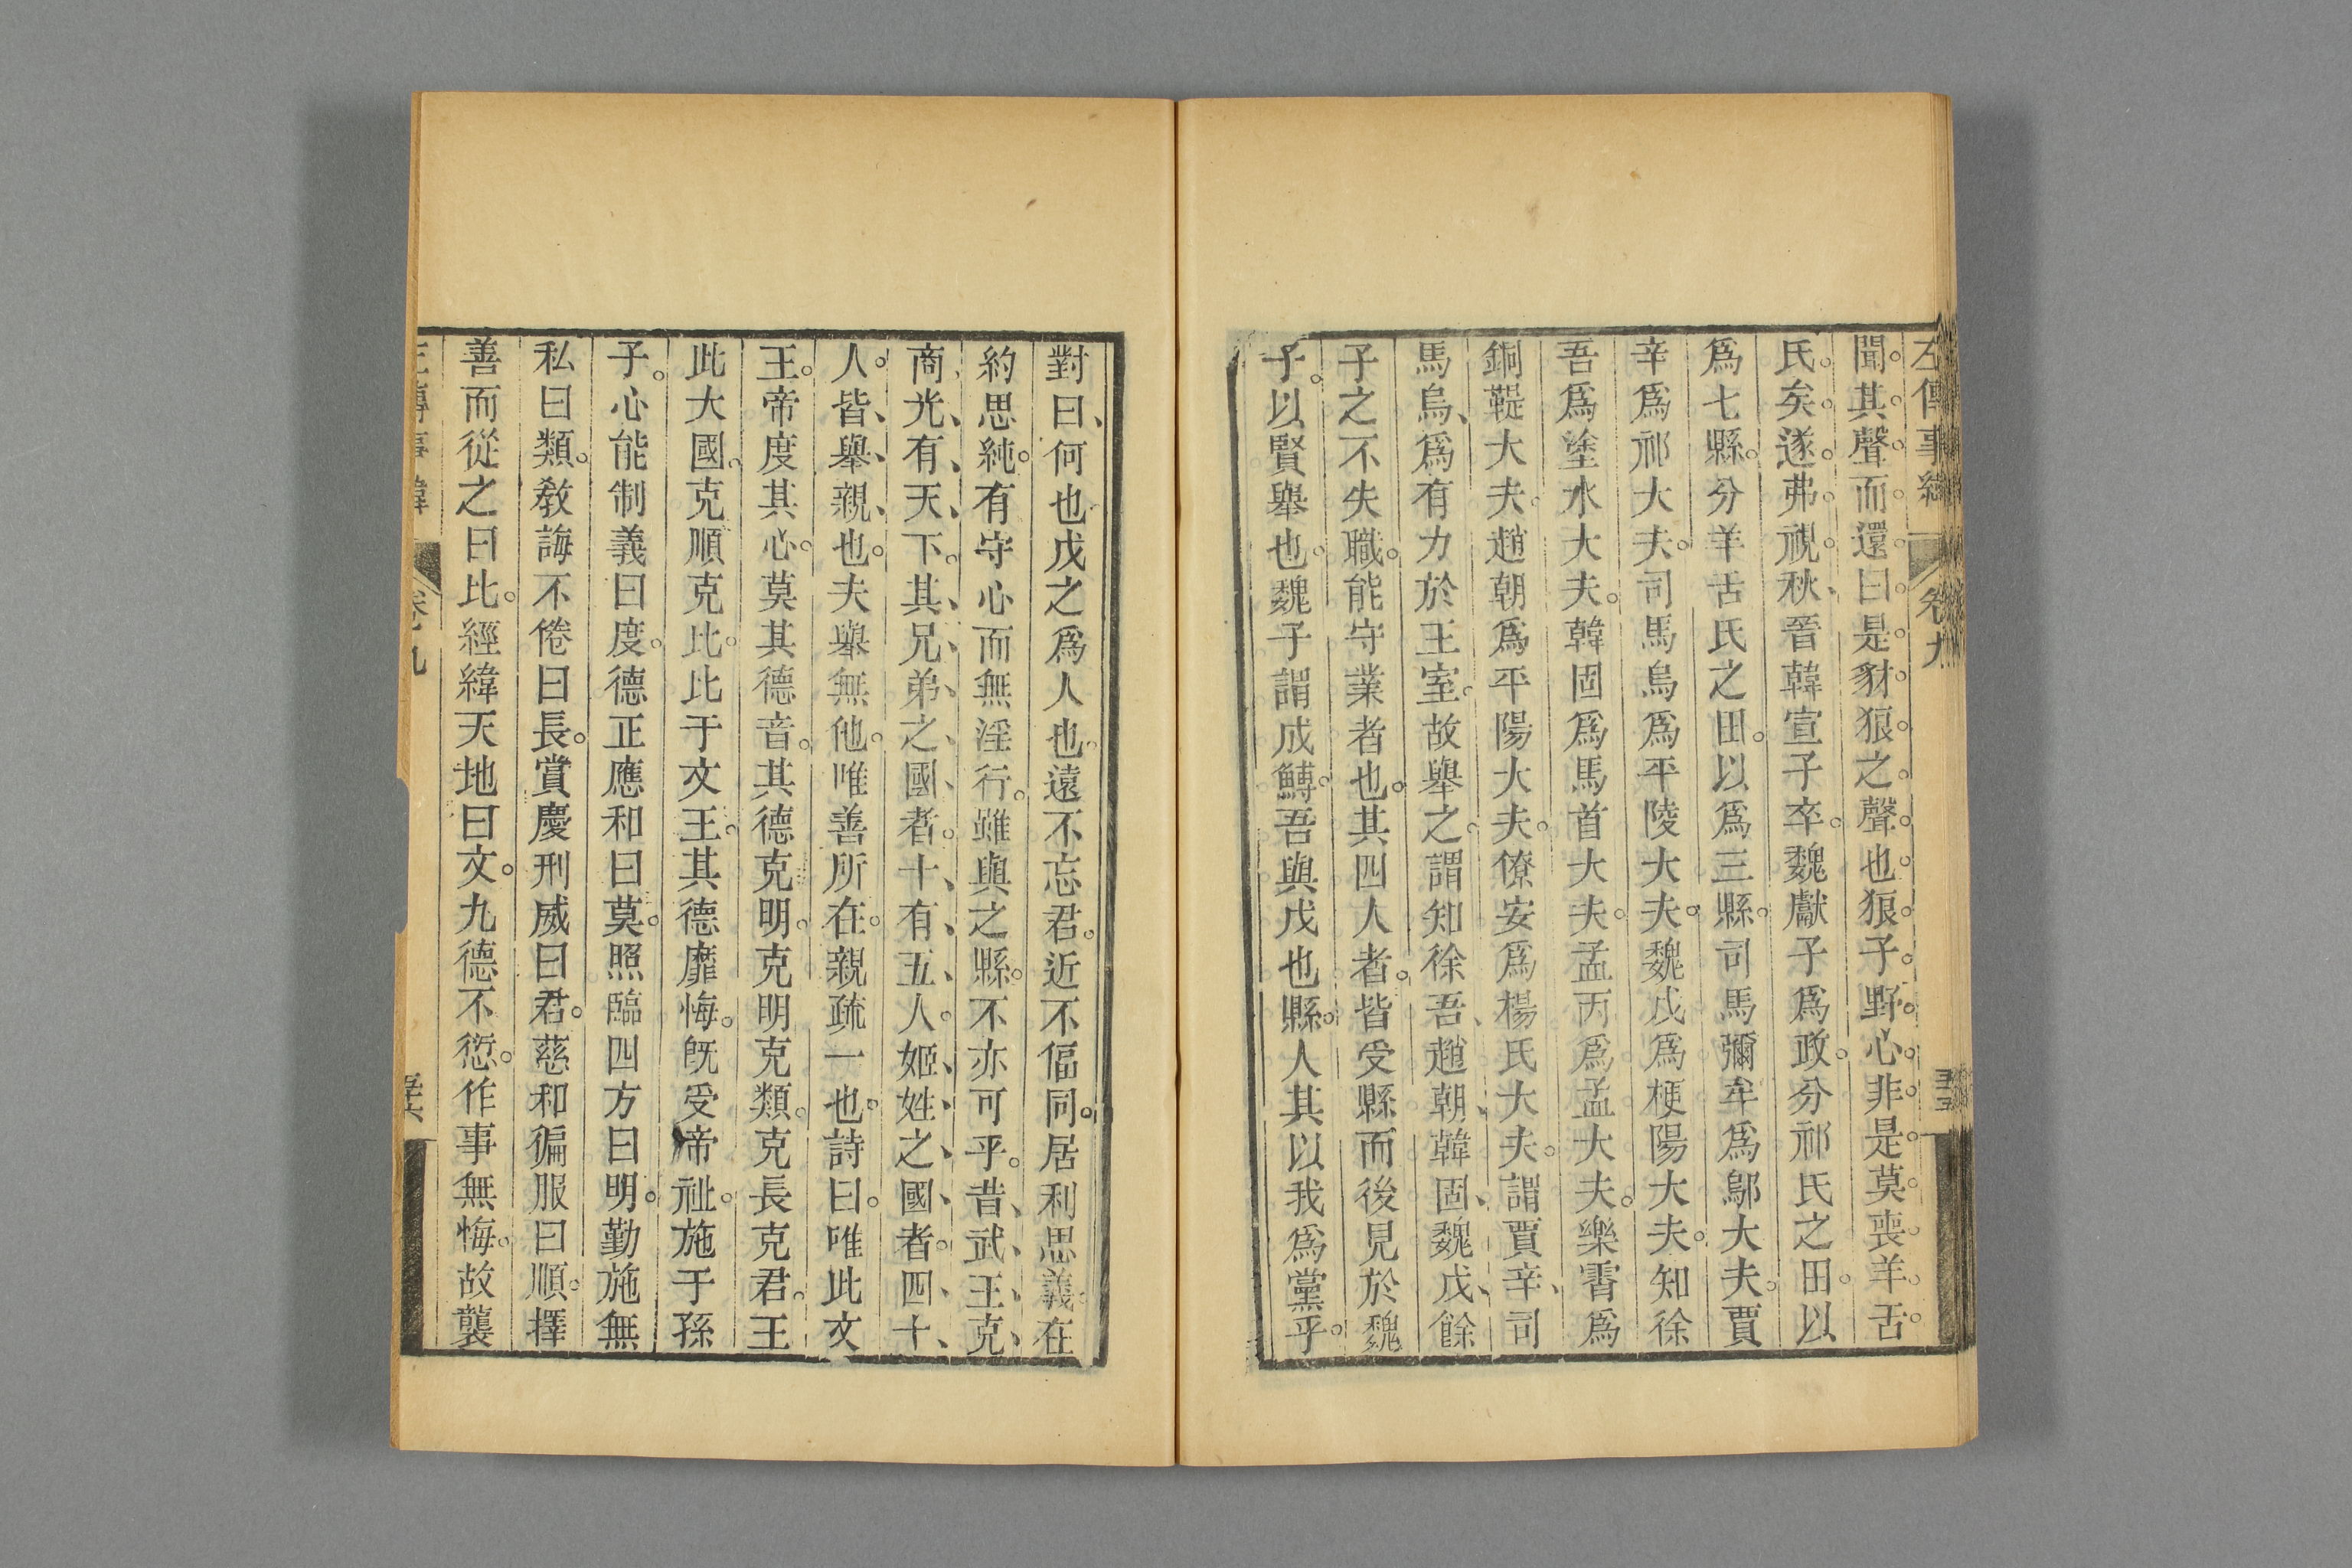 左傳事緯 卷九
聞其聲而還曰是豺狼之聲也狼子野心非是莫喪羊舌
氏矣遂弗視秋晉韓宣子卒魏獻子爲政分祁氏之田以
爲七縣分羊舌氏之田以爲三縣司馬彌牟爲鄔大夫賈
辛爲祁大夫司馬烏爲平陵大夫魏戊爲梗陽大夫知徐
吾爲塗水大夫韓固爲馬首大夫孟丙爲孟大夫樂霄爲
銅鞮大夫趙朝爲平陽大夫僚安爲楊氏大夫謂賈辛司
馬烏爲有力於王室故舉之謂知徐吾趙朝韓固魏戊餘
子之不失職能守業者也其四人者皆受縣而後見於魏
子以賢舉也魏子謂成鱄吾與戊也縣人其以我爲黨乎
對曰何也戊之爲人也遠不忘君近不偪同居利思義在
約思純有守心而無淫行雖與之縣不亦可乎昔武王克
商光有天下其兄弟之國者十有五人姬姓之國者四十
人皆舉親也夫舉無他唯善所在親疏一也詩曰唯此文
王帝度其心莫其德音其德克明克明克類克長克君王
此大國克順克比比于文王其德靡悔旣受帝祉施于孫
子心能制義曰度德正應和曰莫照臨四方曰明勤施無
私曰類敎誨不倦曰長賞慶刑威曰君慈和徧服曰順擇
善而從之曰比經緯天地曰文九德不愆作事無悔故襲